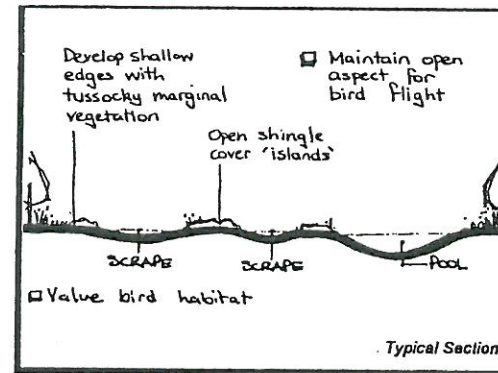 Develop shallow
edges with
tussocky marginal
vegetation
Maintain open
aspect for
bird flight
Open shingle
cover 'islands'
SCRAPE
SCRAPE
POOL
Value bird habitat
Typical Section